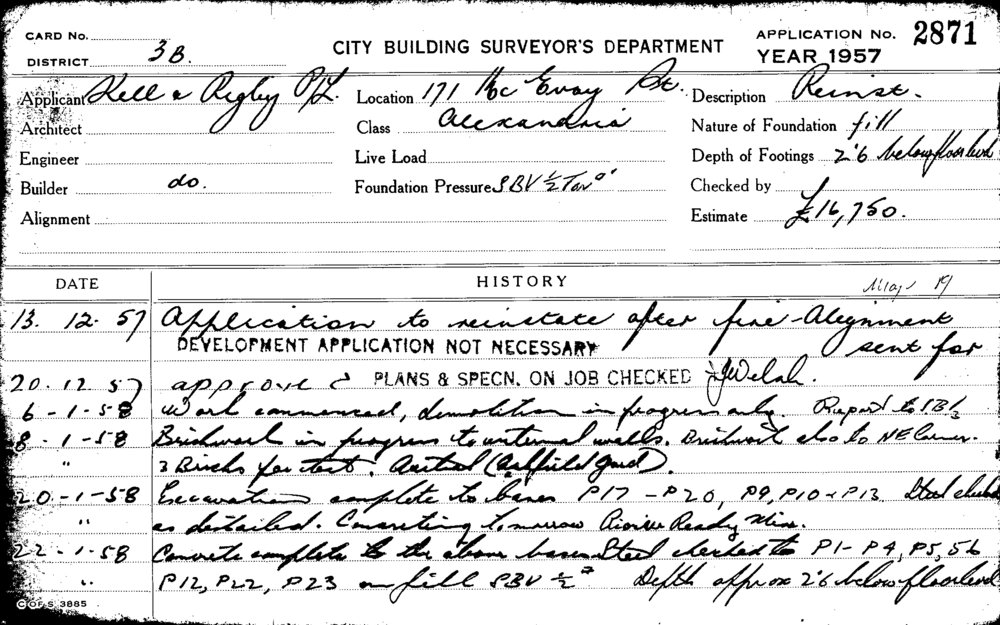 CARD No.
DISTRICT 3B.
CITY BUILDING SURVEYOR'S DEPARTMENT
APPLICATION NO. 2871
YEAR 1957
Applicant Kell & Rigby P/L. Location 171 Mc Evoy St. Description Reinst.
Architect Class Alexandria Nature of Foundation fill
Engineer Live Load Depth of Footings 2'6 below floor level
Builder do. Foundation Pressure SBV ½ Ton □' Checked by
Alignment Estimate £16,750.
DATE HISTORY
13. 12. 57 Application to reinstate after fire - Alignment
DEVELOPMENT APPLICATION NOT NECESSARY sent for
20. 12. 57 approved PLANS & SPECN. ON JOB CHECKED JWelsh.
6 - 1 - 58 Work commenced, demolition in progress only. Report to
8 - 1 - 58 Brickwork in progress to internal walls. Brickwork also to NE Corner.
" 3 Bricks for test. Austral (Ashfield Yard).
20 - 1 - 58 Excavations complete to bases P17 - P20, P9, P10 & P13. Steel checked
" as detailed. Concreting tomorrow Pioneer Ready Mix.
22 - 1 - 58 Concrete complete to the above bases Steel checked to P1 - P4, P5, 
" P12, P22, P23 on fill SBV ½ Depth approx 2'6 below floor level
C OF S 3885